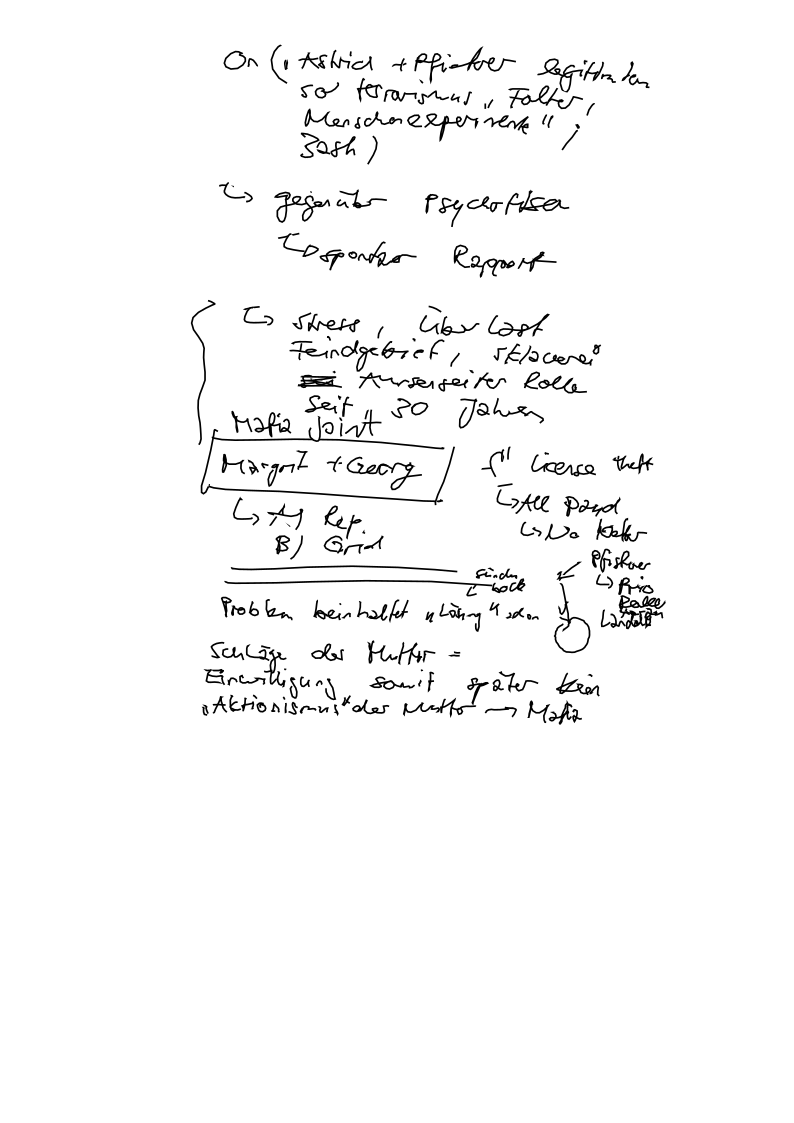 On („ Astrid + Pfister legitim
so terrorismus „ Folter,
Menschenexperimente" ;
3ash)
↳ gegenüber
↳ Rapport
↳ Stress, Überlast
Feindgebief, Sklaverei"
Aussenseiter Rolle
Seit „ 30 Jahren
Mafia joint
Margrit + Georg
↳ A) Rep.
B) Grid
" License theft
↳ All
↳ No
Pfister
↳ Prio
Rolle
Sünden
bock
Problem beinhaltet „ Lösung " schon
Schläge der Mutter =
Einwilligung somit später kein
„Aktionismus" der Mutter → Mafia